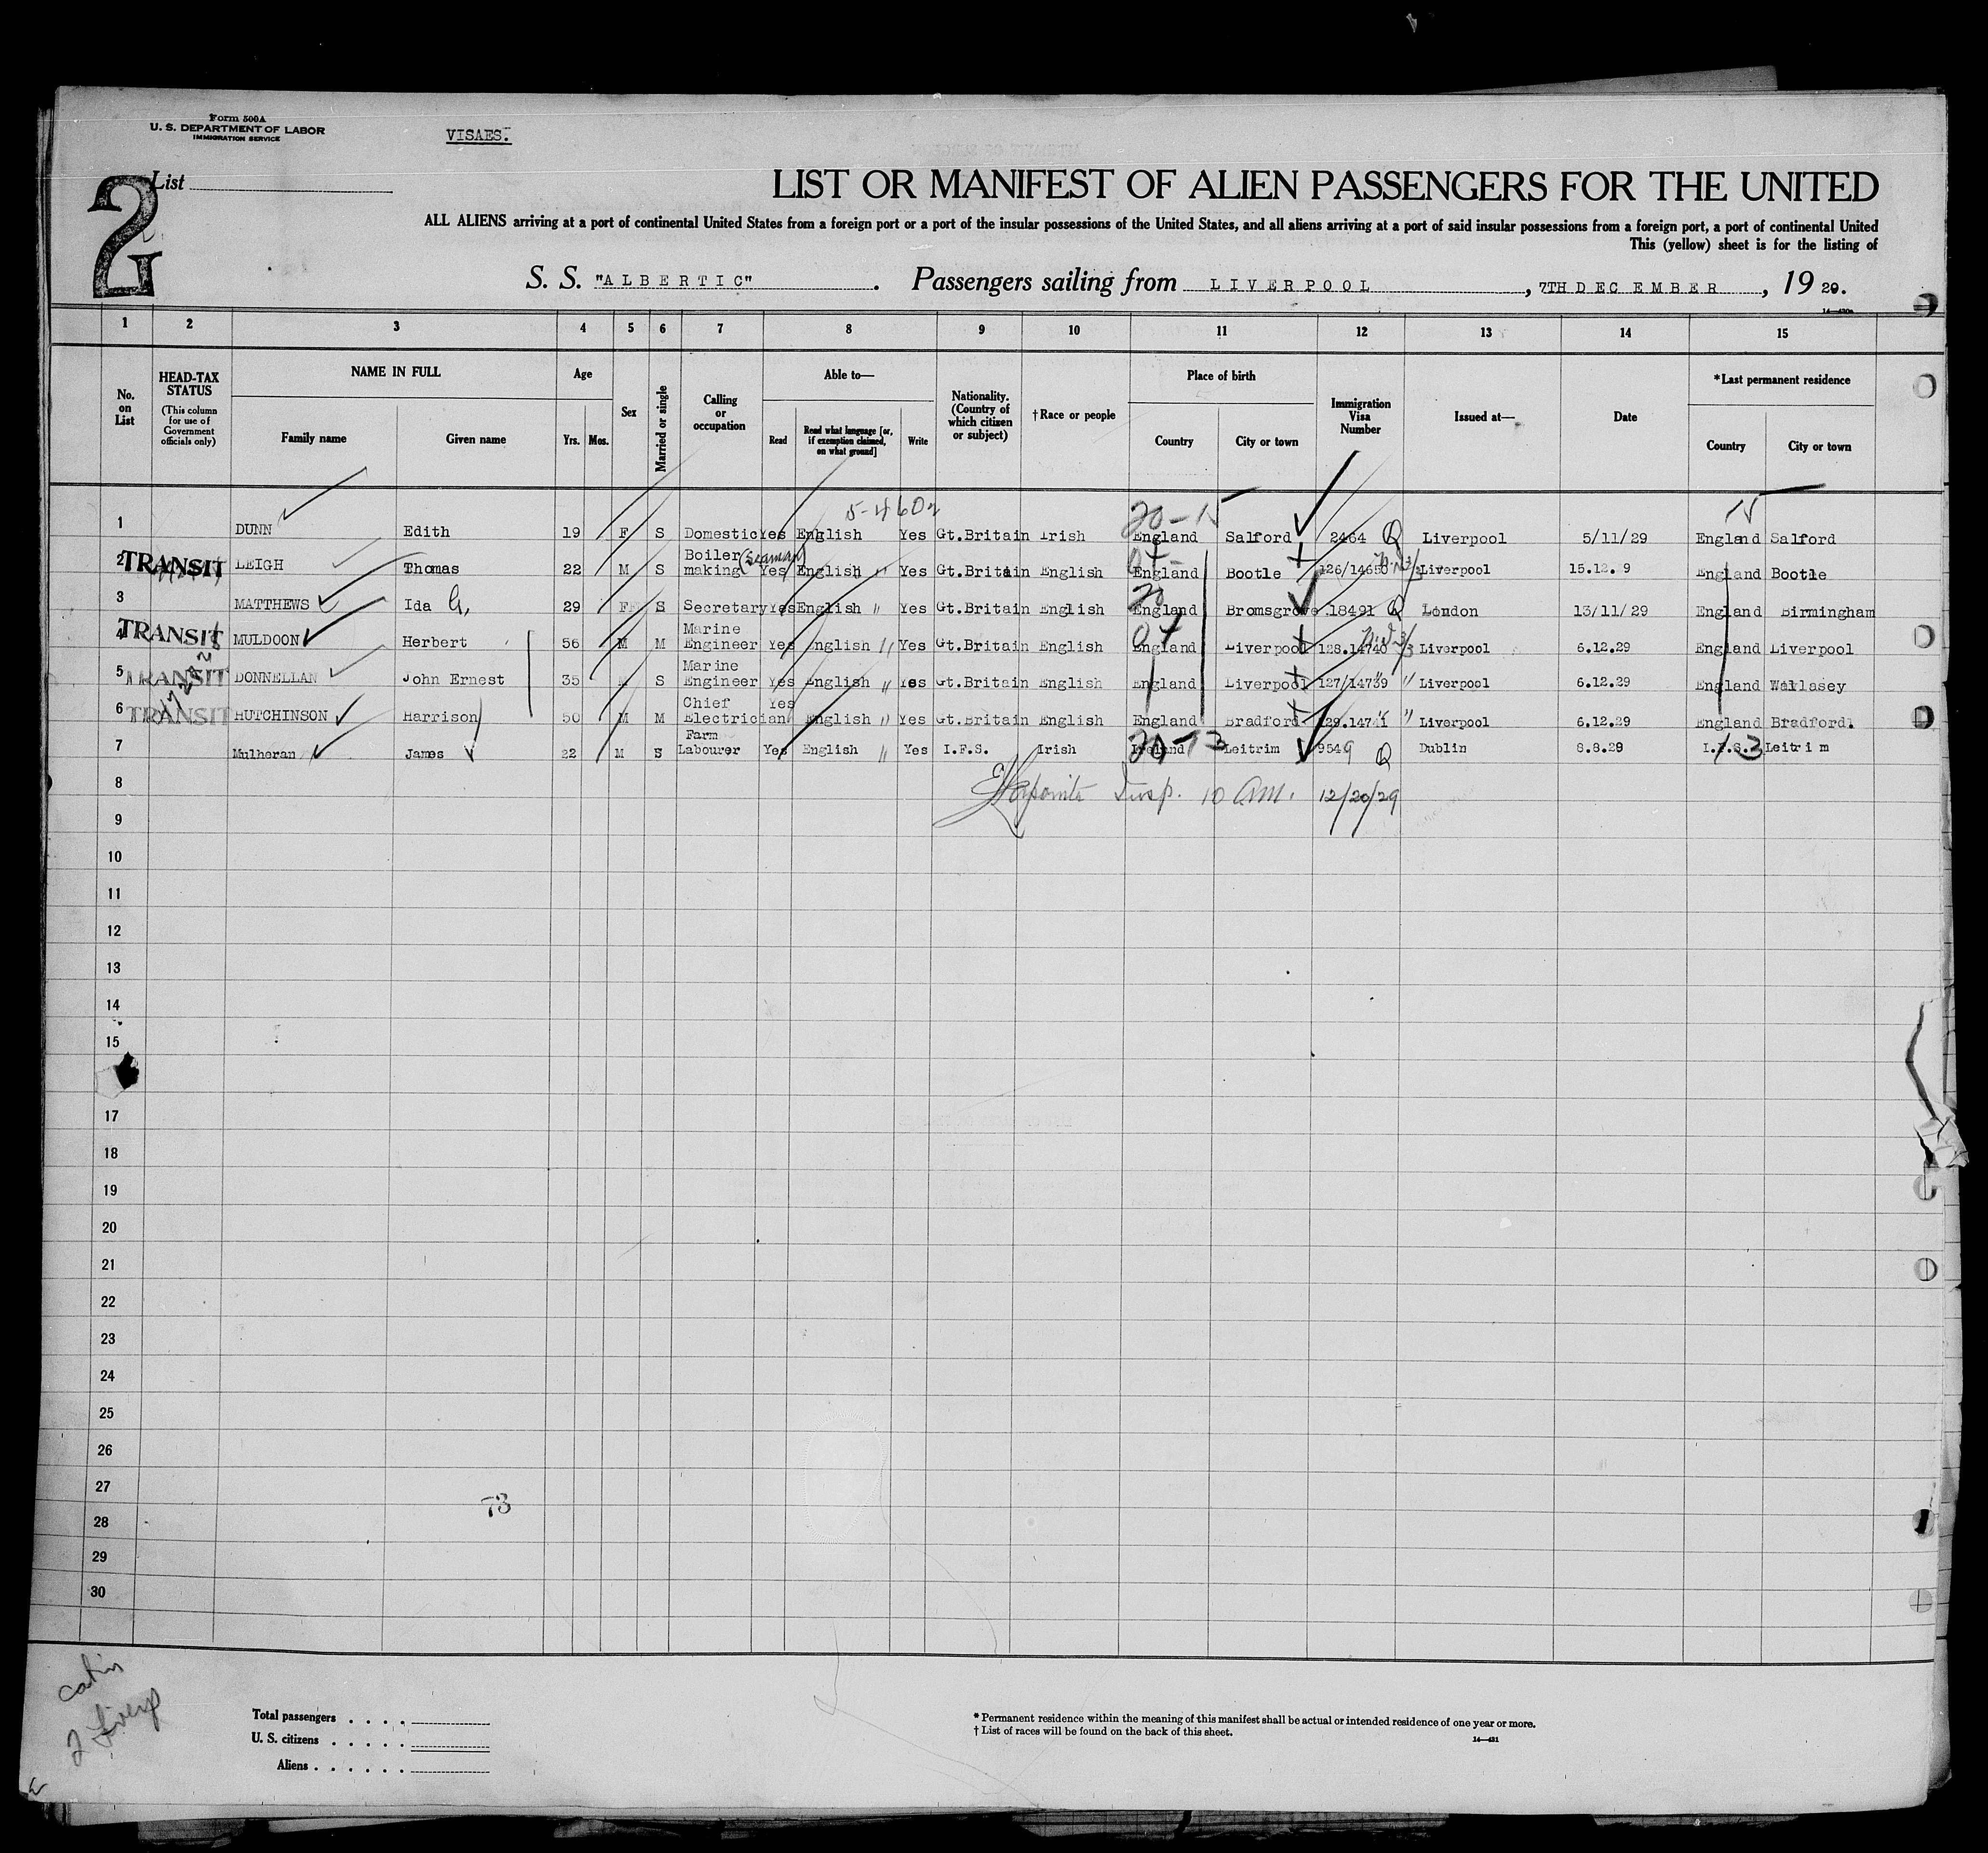 Form 500A
U. S. DEPARTMENT OF LABOR
IMMIGRATION SERVICE
VISAES.
2
List
LIST OR MANIFEST OF ALIEN PASSENGERS FOR THE UNITED
ALL ALIENS arriving at a port of continental United States from a foreign port or a port of the insular possessions of the United States, and all aliens arriving at a port of said insular possessions from a foreign port, a port of continental United
This (yellow) sheet is for the listing of
S. S. "ALBERTIC". Passengers sailing from LIVERPOOL, 7TH DECEMBER, 19 29.
1 2 3 4 5 6 7 8 9 10 11 12 13 14 15
No. on List
HEAD-TAX STATUS
(This column for use of Government officials only)
NAME IN FULL
Family name Given name
Age
Yrs. Mos.
Sex
Married or single
Calling or occupation
Able to—
Read
Read what language [or, if exemption claimed, on what ground]
Write
Nationality. (Country of which citizen or subject)
†Race or people
Place of birth
Country City or town
Immigration Visa Number
Issued at—
Date
*Last permanent residence
Country City or town
1 DUNN Edith 19 F S Domestic Yes English Yes Gt.Britain Irish England Salford 2464 Q Liverpool 5/11/29 England Salford
2 TRANSIT LEIGH Thomas 22 M S Boiler making (Seaman) Yes English " Yes Gt.Britain English England Bootle 126/14650 Liverpool 15.12. 9 England Bootle
3 MATTHEWS Ida G. 29 F S Secretary Yes English " Yes Gt.Britain English England Bromsgrove 18491 Q London 13/11/29 England Birmingham
4 TRANSIT MULDOON Herbert 56 M M Marine Engineer Yes English " Yes Gt.Britain English England Liverpool 128.14740 Liverpool 6.12.29 England Liverpool
5 TRANSIT DONNELLAN John Ernest 35 M S Marine Engineer Yes English " Yes Gt.Britain English England Liverpool 127/14739 " Liverpool 6.12.29 England Wallasey
6 TRANSIT HUTCHINSON Harrison 50 M M Chief Electrician Yes English " Yes Gt.Britain English England Bradford 129.14741 " Liverpool 6.12.29 England Bradford.
7 Mulheran James 22 M S Farm Labourer Yes English " Yes I.F.S. Irish Ireland Leitrim 9549 Q Dublin 8.8.29 I.F.S. Leitrim
8 Insp. 10 am. 12/20/29
9
10
11
12
13
14
15
17
18
19
20
21
22
23
24
25
26
27
73
28
29
30
Total passengers
U. S. citizens
Aliens
* Permanent residence within the meaning of this manifest shall be actual or intended residence of one year or more.
† List of races will be found on the back of this sheet.
14—431